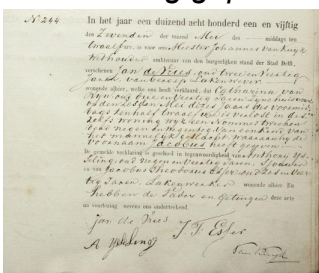 No 244
In het jaar een duizend acht honderd een en vijftig
den Zevenden der maand Mei des middags ten
twaalf ure, is voor ons Meester Johannes van Kuyk
Wethouder ambtenaar van den burgerlijken stand der Stad Delft,
verschenen Jan de Vries, oud twee en Veertig
Jaren, van beroep
wonende alhier, welke ons heeft verklaard, dat Catharina van
Rijn, oud
op den zesden Mei dezes jaars des voormiddags
ten half twaalf ure is bevallen in des
zelfs woning wijk een Nommer twee hon
derd negen en negentig Van een kind van
het mannelijk geslacht waaraan hij de
voornaam Jacobus heeft gegeven.
De gemelde verklaring is geschied in tegenwoordigheid van Anthony Ys
seling oud Negen en Veertig Jaren,
en van Jacobus Theodorus Esser, oud Zes en Veer
tig Jaren, Lakenwerker wonende alhier. En
hebben de Vader en Getuigen deze acte
na voorlezing nevens ons onderteekend.
Jan de Vries
J T Esser
A Ysseling
Van Kuyk